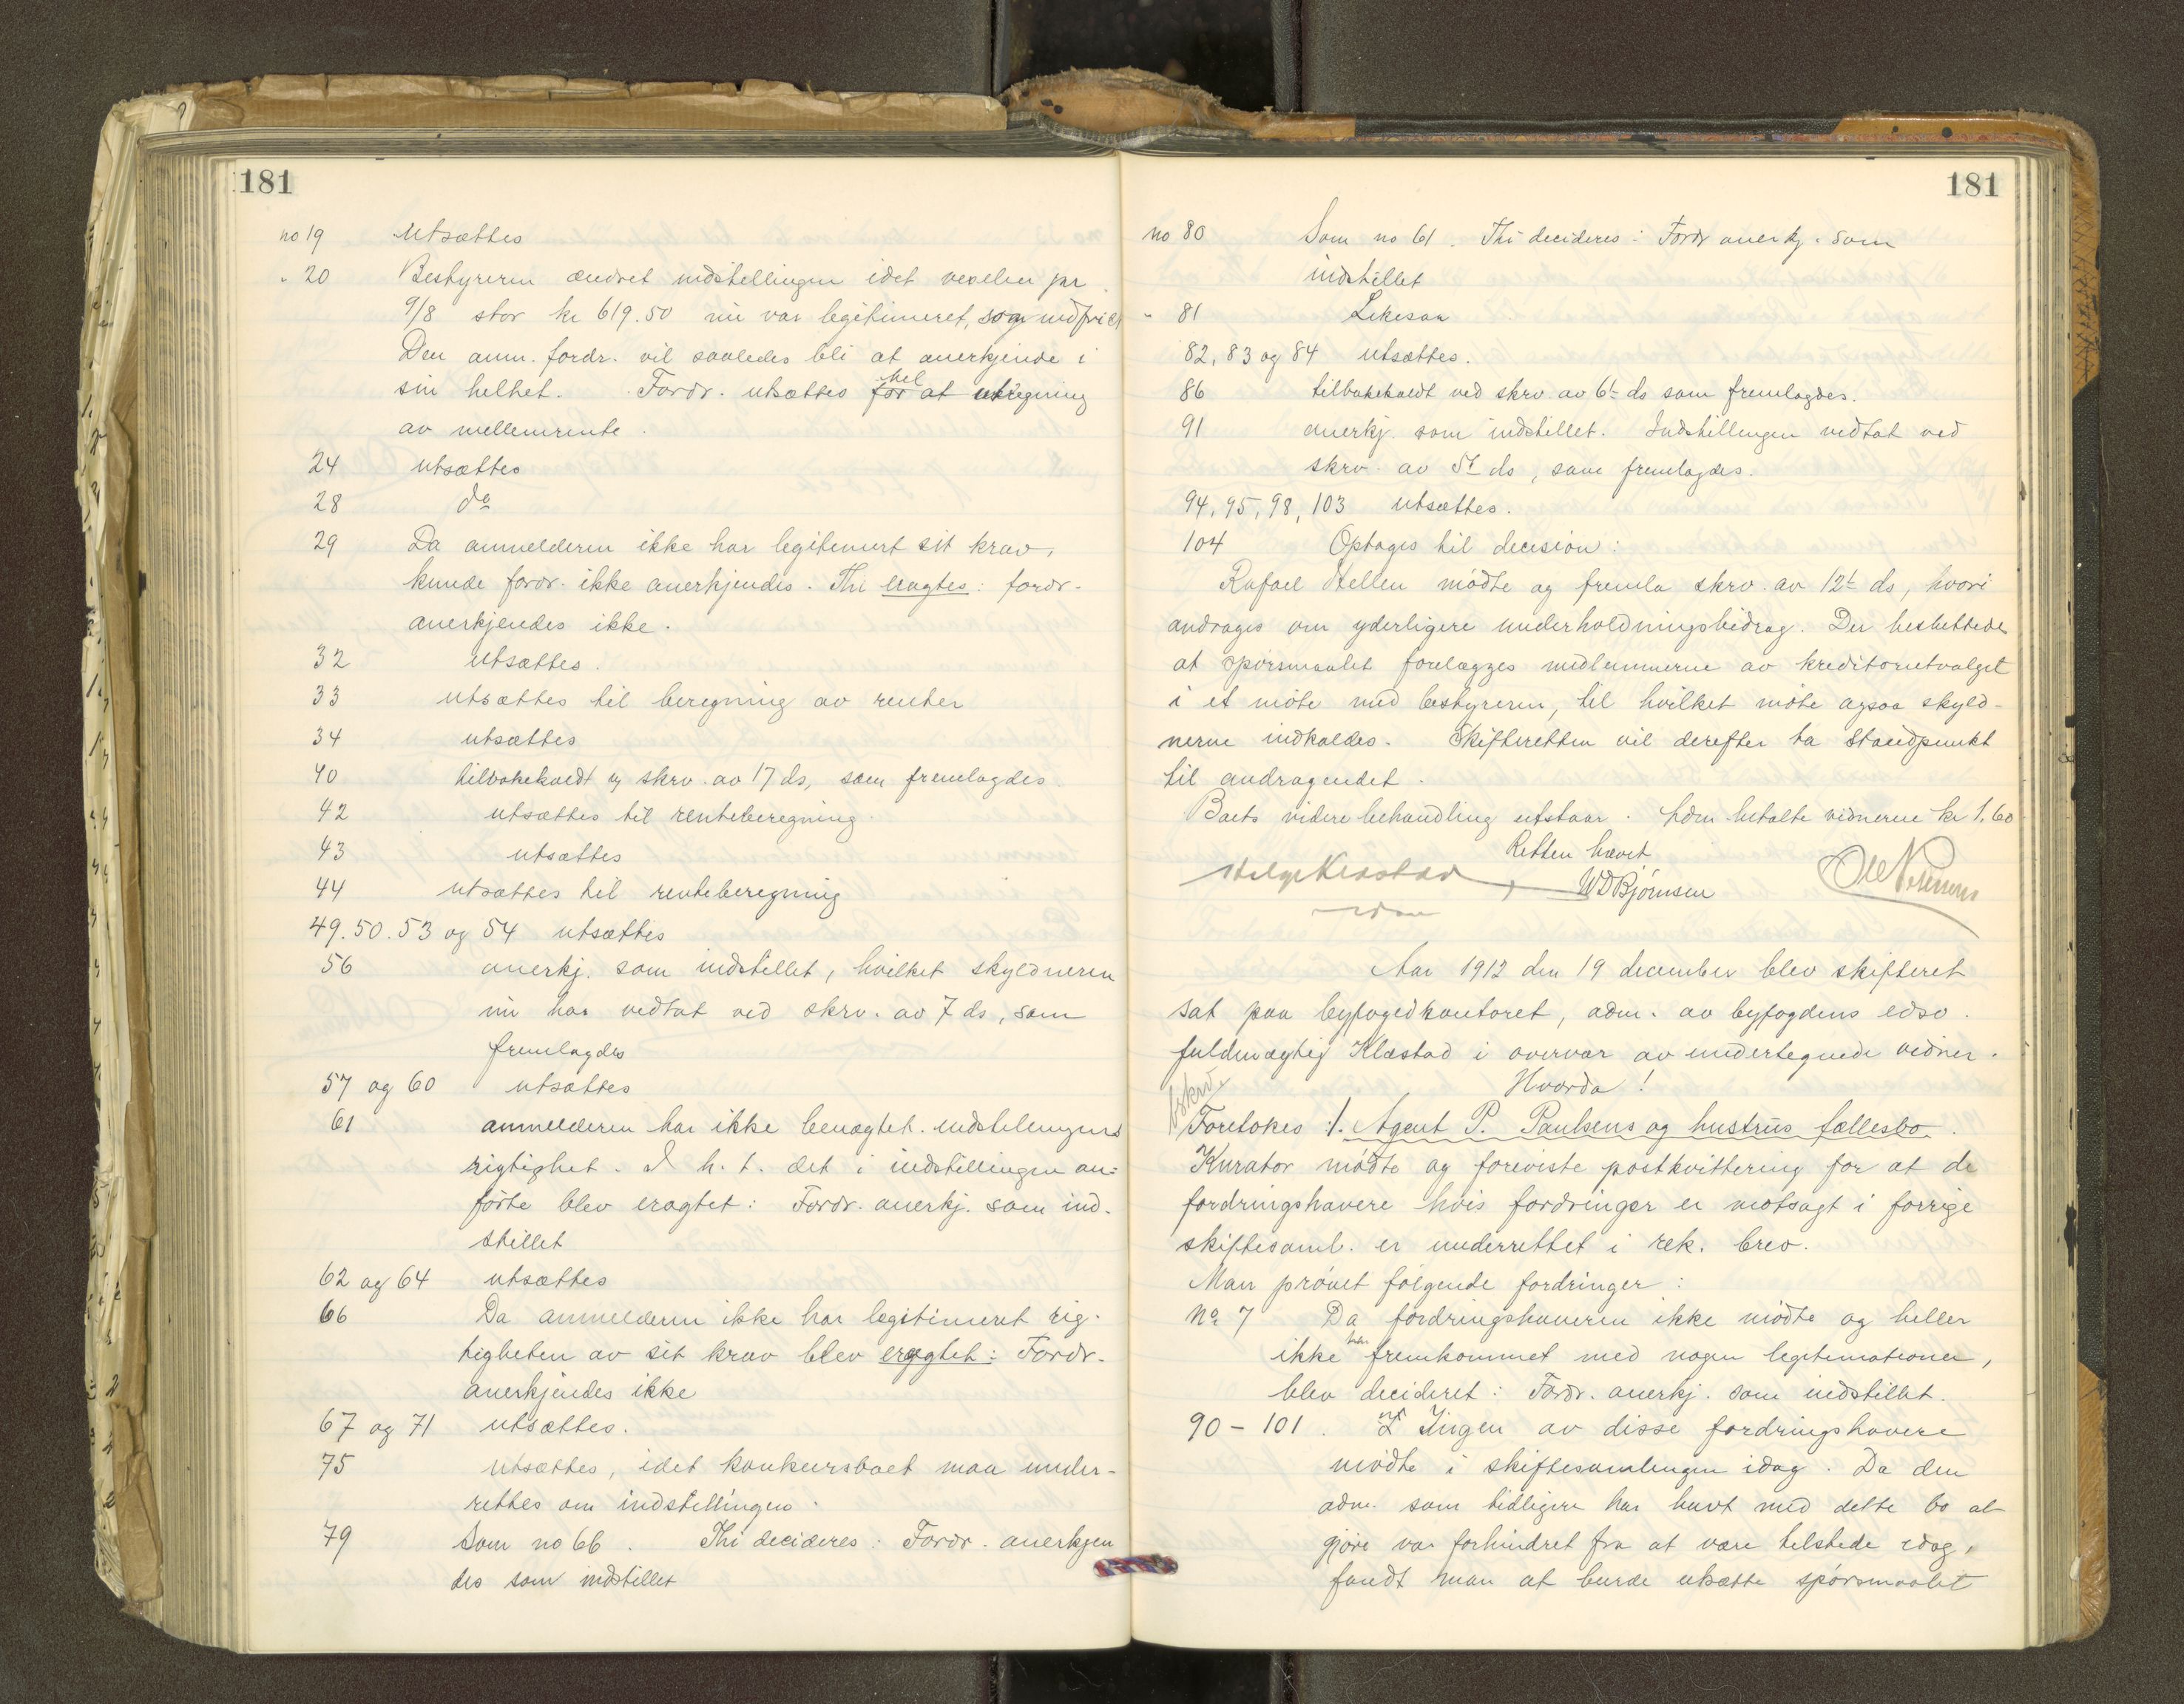 181
no 19 utsættes
" 20 Bestyreren ændret indstillingen idet vexelen pr
9/8 stor kr 619.50 nu var legitimeret,
Den anm. fordr. vil saaledes bli at anerkjende i
sin helhet. Fordr. utsættes for til at utregning
av mellemrente.
24 utsættes
28 do
29 Da anmelderen ikke har legitimert sit krav,
kunde fordr. ikke anerkjendes. Thi eragtes: fordr.
anerkjendes ikke.
32 utsættes.
33 utsættes til beregning av renter
34 utsættes
40 tilbakekaldt v/ skrv. av 17 ds, som fremlagdes.
42 utsættes til renteberegning.
43 utsættes
44 utsættes til renteberegning
49.50.53 og 54 utsættes
56 anerkj. som indstillet, hvilket skyldneren
nu har vedtat ved skrv. av 7 ds, som
fremlagdes
57 og 60 utsættes
61 anmelderen har ikke benægtet indstillingens
rigtighet. I h. t. det i indstillingen an-
førte blev eragtet: Fordr. anerkj. som ind-
stillet
62 og 64 utsættes
66 Da anmelderen ikke har legitimeret rig-
tigheten av sit krav blev eragtet: Fordr.
anerkjendes ikke
67 og 71 utsættes.
75 utsættes, idet konkursboet maa under-
rettes om indstillingen.
79 Som no 66. Thi decideres: Fordr. anerkjen
des som indstillet
181
no 80 Som no 61. Thi decideres: Fordr anerkj. som
indstillet
" 81 Likesaa
82, 83 og 84 utsættes.
86 tilbakekaldt ved skrv. av 6t ds som fremlagdes.
91 anerkj. som indstillet. Indstillingen vedtat ved
skrv. av 5t ds, som fremlagdes.
94, 95, 98, 103 utsættes.
104 Optages til decision:
Rafael Hellen mødte og fremla skrv. av 12t ds, hvori
andrages om yderligere underholdningsbidrag. Der besluttedes
at spørsmaalet forelægges medlemmerne av kreditorutvalget
i et møte med bestyreren, til hvilket møte ogsaa skyld-
nerne indkaldes. Skifteretten vil derefter ta standpunkt
til andragendet.
Boets videre behandling utstaar. Adm. betalte vidnerne kr 1,60
Retten hævet
Helge Klæstad
WD Bjørnsen
Aar 1912 den 19 december blev skifteret
sat paa byfogedkontoret, adm. av byfogdens edsv.
fuldmægtig Klæstad i overvær av undertegnede vidner.
Hvorda!
Foretokes: 1. Agent P. Paulsens og hustrus fællesbo.
Kurator mødte og foreviste postkvittering for at de
fordringshavere hvis fordringer er motsagt i forrige
skiftesaml. er underrettet i rek. brev.
Man prøvet følgende fordringer:
No 7 Da fordringshaveren ikke mødte og heller
ikke har fremkommet med nogen legitimationer,
blev decideret: Fordr. anerkj. som indstillet.
90 – 101. Ingen av disse fordringshavere
mødte i skiftesamlingen idag. Da den
adm. som tidligere har havt med dette bo at
gjøre var forhindret fra at være tilstede idag,
fandt man at burde utsætte spørsmaalet